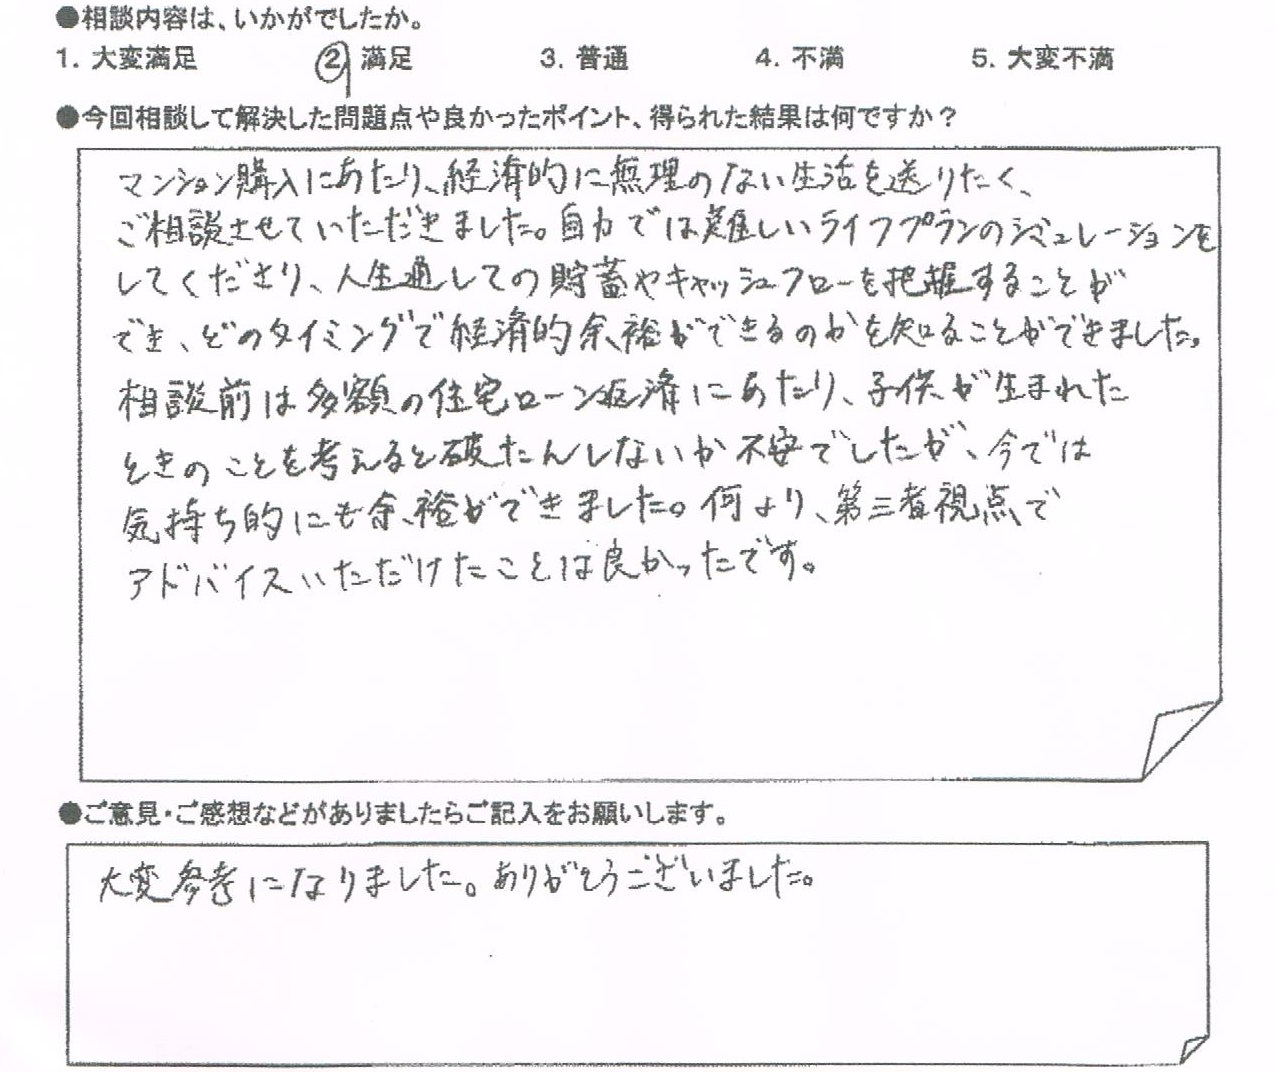 ●相談内容は、いかがでしたか。
1. 大変満足　② 満足　3. 普通　4. 不満　5. 大変不満
●今回相談して解決した問題点や良かったポイント、得られた結果は何ですか？
マンション購入にあたり、経済的に無理のない生活を送りたく、
ご相談させていただきました。自力では難しいライフプランのシミュレーションを
してくださり、人生通しての貯蓄やキャッシュフローを把握することが
でき、どのタイミングで経済的余裕ができるのかを知ることができました。
相談前は多額の住宅ローン返済にあたり、子供が生まれた
ときのことを考えると破たんしないか不安でしたが、今では
気持ち的にも余裕ができました。何より、第三者視点で
アドバイスいただけたことは良かったです。
●ご意見・ご感想などがありましたらご記入をお願いします。
大変参考になりました。ありがとうございました。